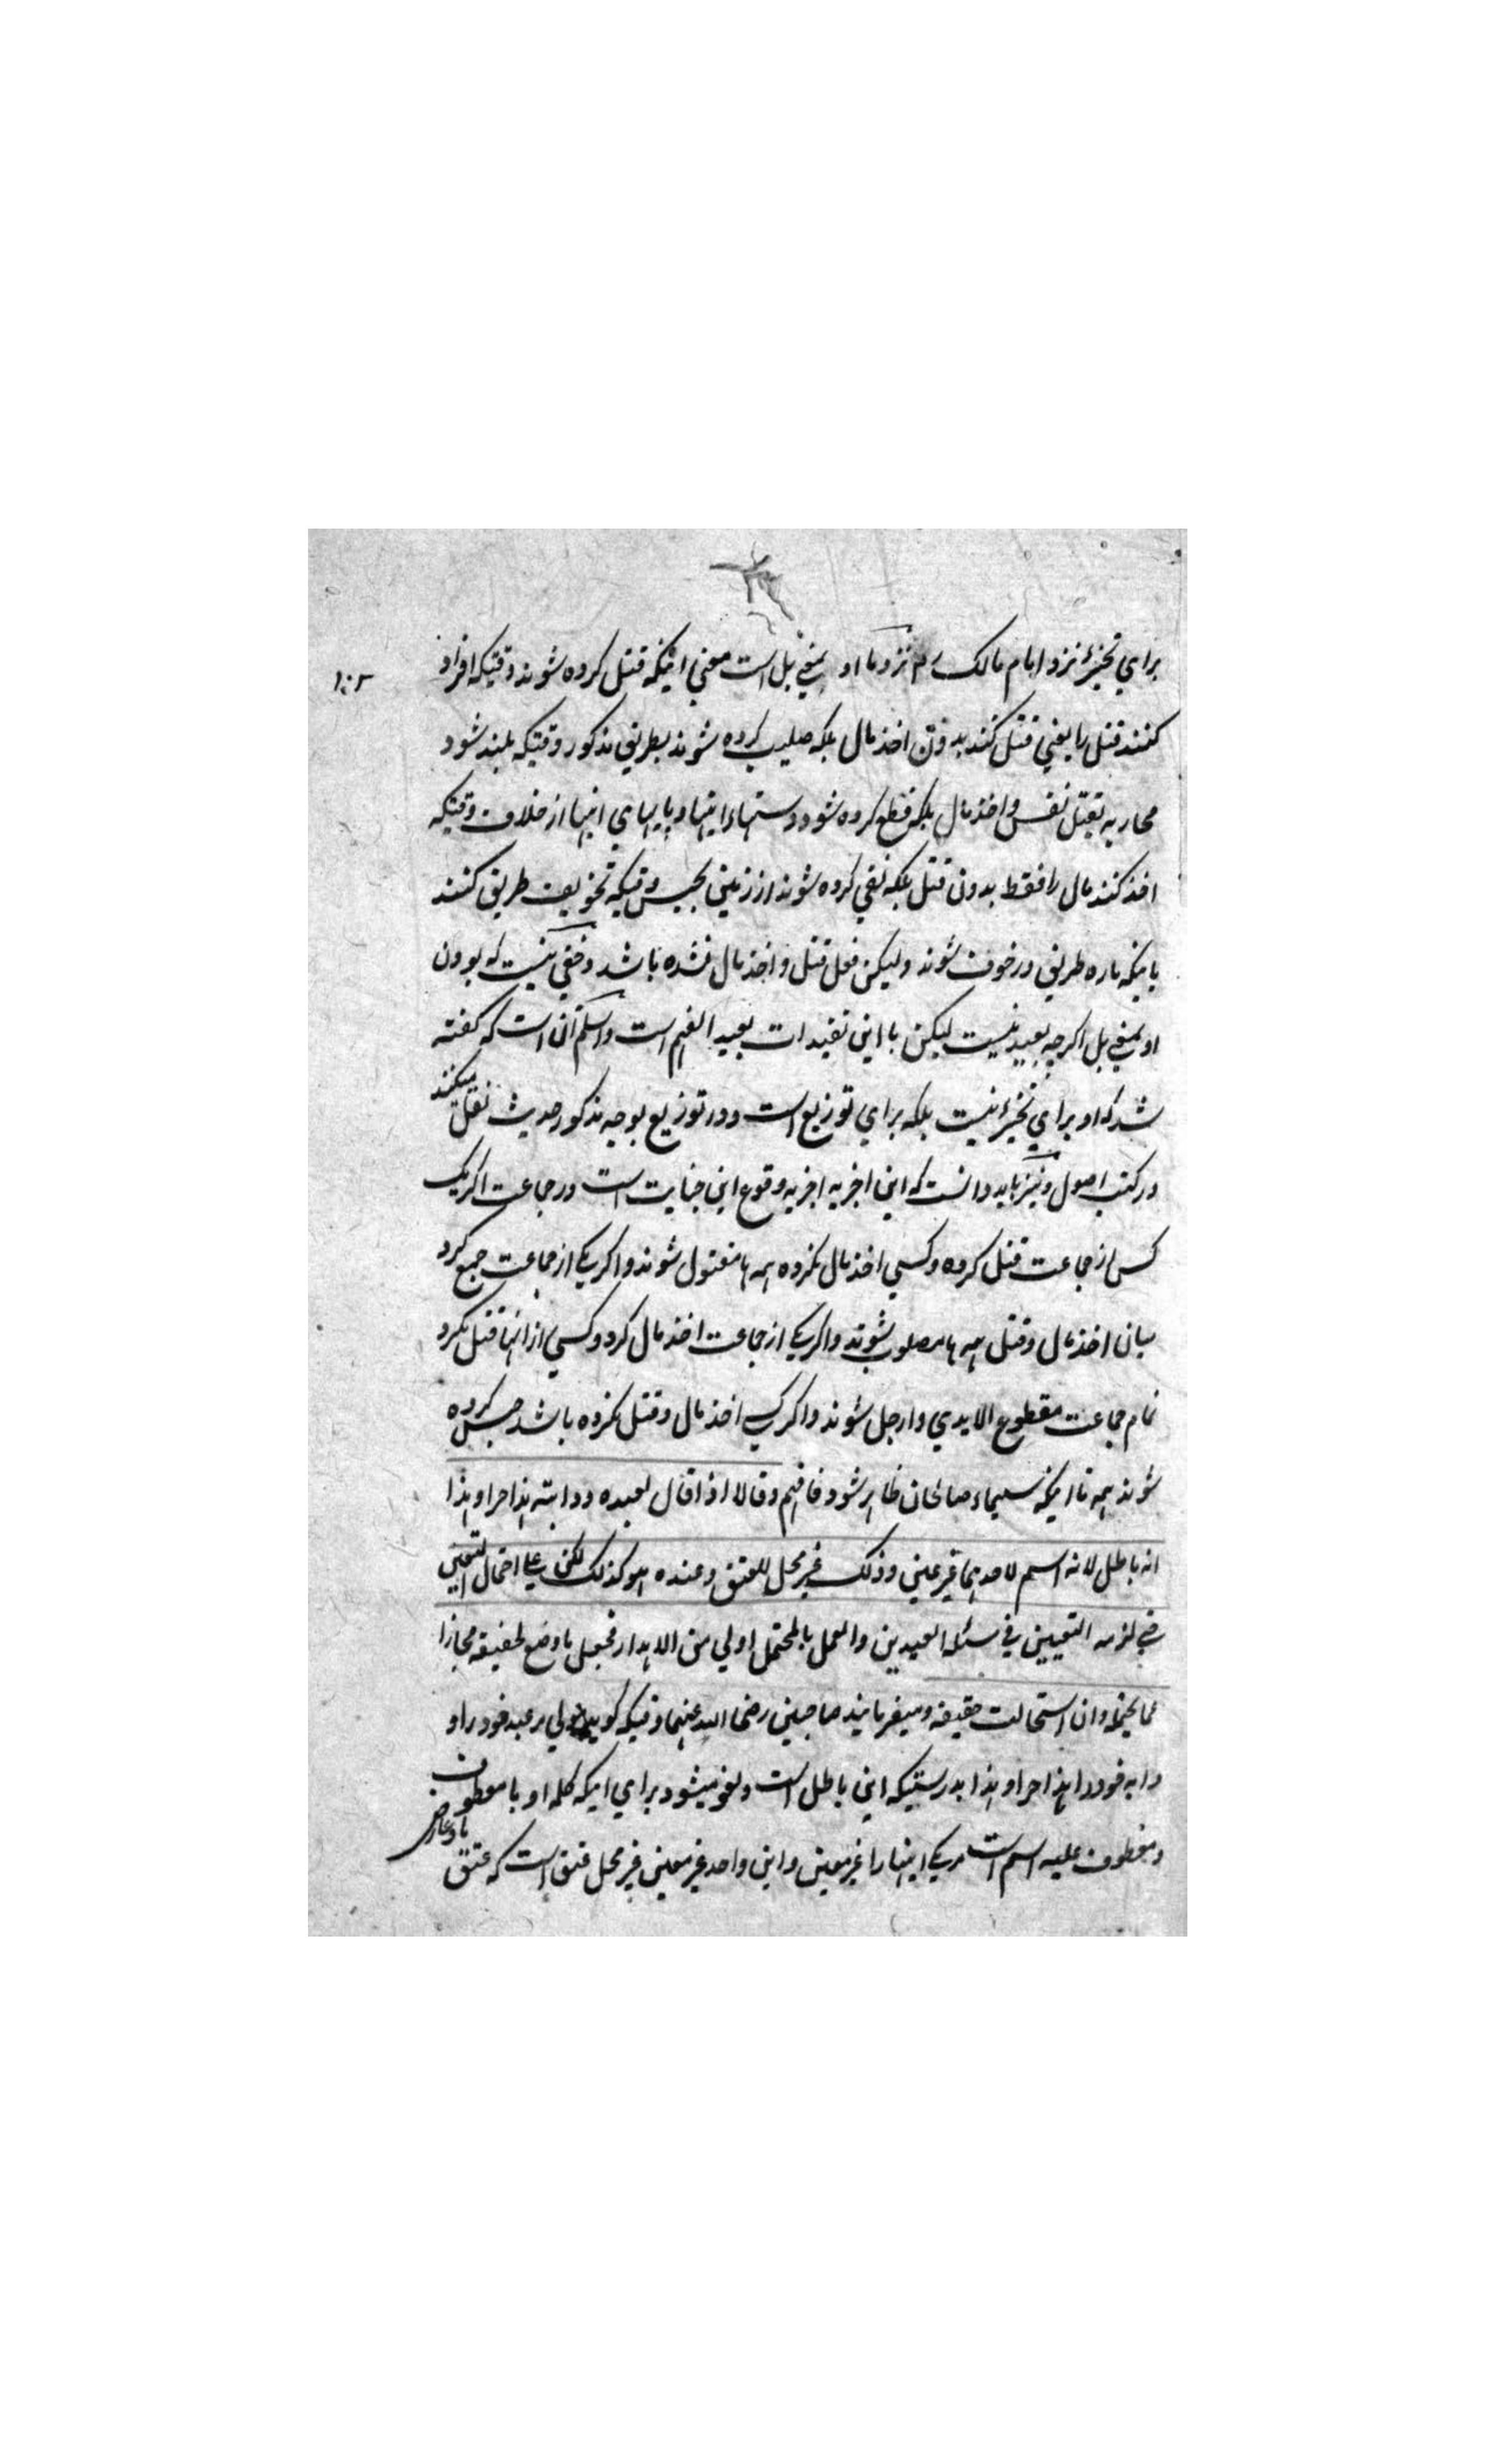 براي تخیير نزد امام مالک رح نزد ما او بمعني بل است معني اینکه قتل کرده شوند وقتیکه افراد
۱۰۲
کنند قتل را یعني قتل کنند بدون اخذ مال بلکه صلیب کرده شوند بطریق مذکور وقتیکه بلند شود
محاربه بقتل نفس و اخذ مال بلکه قطع کرده شود دستهاء اینها و پایهاي اینها از خلاف وقتیکه
اخذ کنند مال را فقط بدون قتل بلکه نفي کرده شوند از زمین بحبس وقتیکه تخویف طریق کنند
باینکه ماره طریق در خوف شوند ولیکن فعل قتل و اخذ مال نشده باشد و مخفي نیست که بودن
او بمعني بل اکرچه بعید نیست لیکن با این تقیدات بعید الفهم است و اسلم آن است که کفته
شد که او براي تخییر نیست بلکه براي توزیع است و در توزیع بوجه مذکور حدیث نقل میکنند
در کتب اصول و نیز باید دانست که این اجزیه اجزیه وقوع این جنایت است در جماعت اکر یک
کس از جماعت قتل کرده و کسي اخذ مال نکرده همه ها مقتول شوند و اکر یکے از جماعت جمع کرد
میان اخذ مال و قتل همه ها مصلوب شوند و اکر یکے از جماعت اخذ مال کرد و کسي از انها قتل نکرد
تمام جماعت مقطوع الایدي و ارجل شوند و اکر اخذ مال و قتل نکرده باشد حبس کرده
شوند همه تا اینکه سیماء صالحان ظاهر شود فافهم وقالا اذا قال لعبده ودابته هذا حر او هذا
انه باطل لانه اسم لاحدهما غیر عین وذلک غیر محل للعتق وعنده هو کذلک لکن علی احتمال التعیین
حتي لزمه التعیین في مسئلة العبدین والعمل بالمحتمل اولي من الاهدار فجعل ما وضع لحقیقة مجازا
عما یحتمله وان استحالت حقیقته ومیفرمایند صاحبین رضي الله عنهما وقتیکه کوید مولي مر عبد خود را و
دابه خود را هذا حر او هذا بدرستیکه این باطل است و لغو میشود براي اینکه کلمه او با معطوف
و معطوف علیه اسم است مر یکے اینها را غیر معین و این واحد غیر معین غیر محل عتق است که عتق